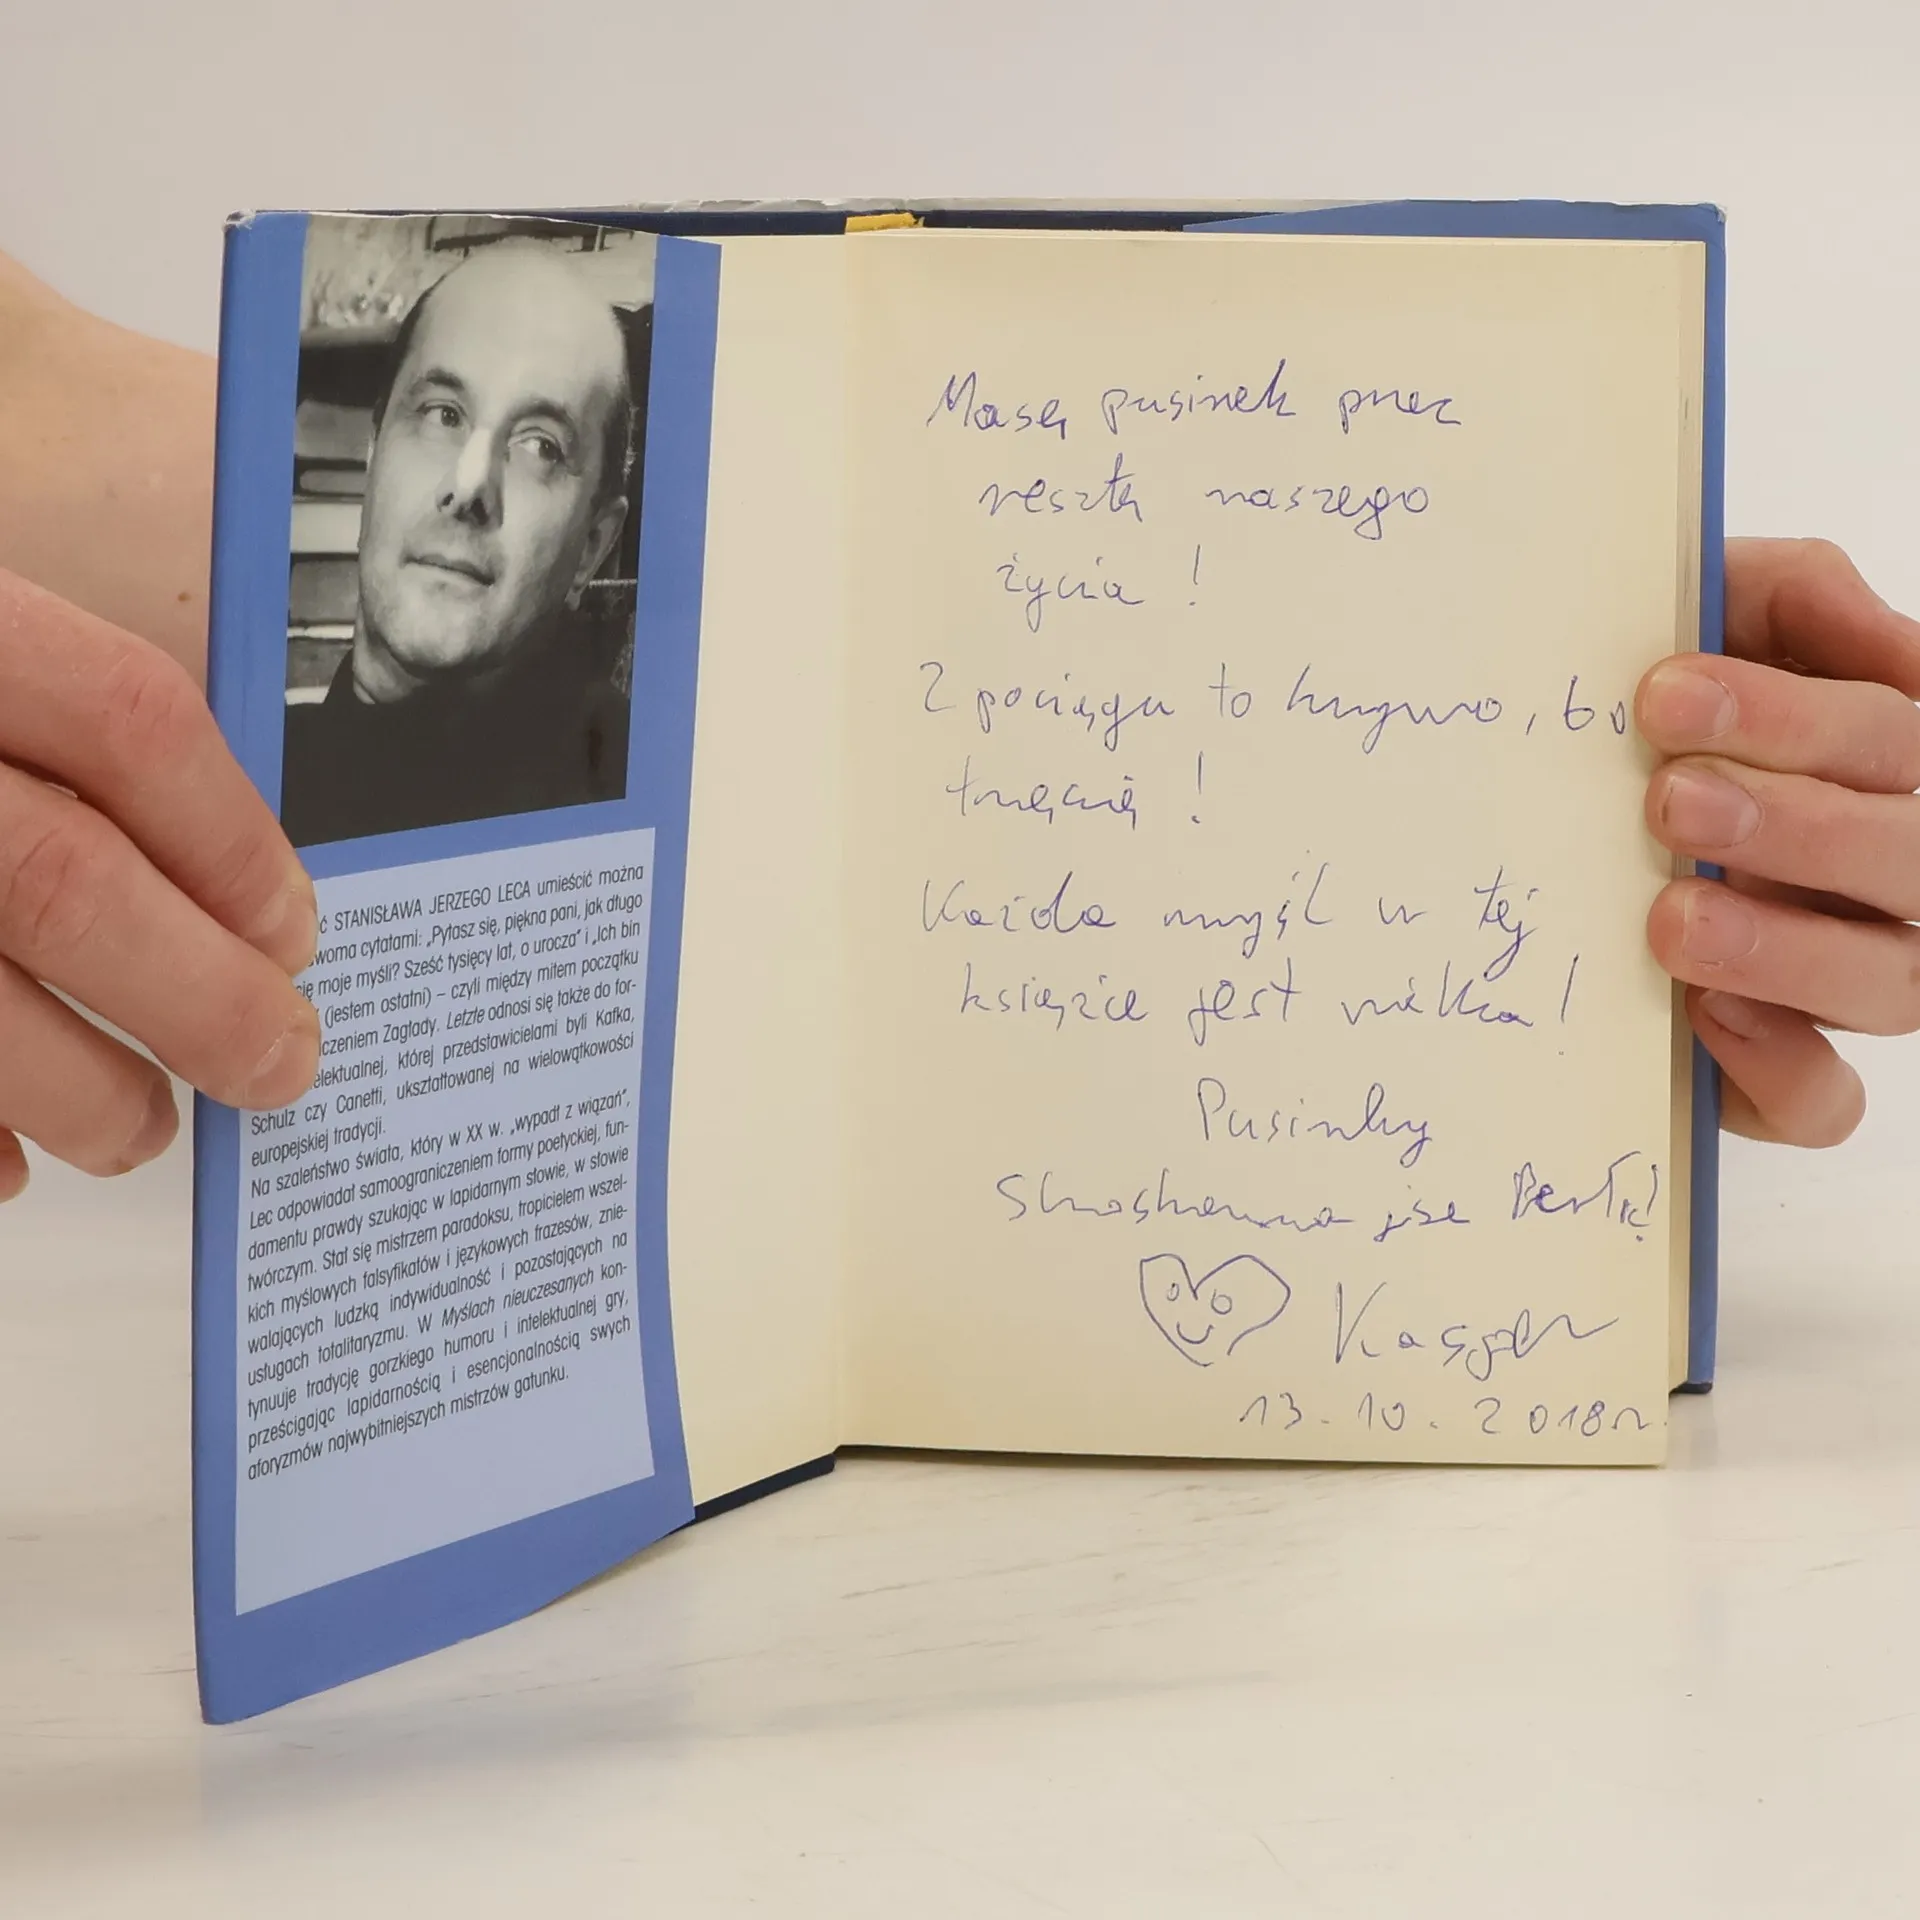 ć STANISŁAWA JERZEGO LECA umieścić można
woma cytatami: „Pytasz się, piękna pani, jak długo
się moje myśli? Sześć tysięcy lat, o urocza” i „Ich bin
(jestem ostatni) – czyli między mitem początku
czeniem Zagłady. Letzte odnosi się także do for-
elektualnej, której przedstawicielami byli Kafka,
Schulz czy Canetti, ukształtowanej na wielowątkowości
europejskiej tradycji.
Na szaleństwo świata, który w XX w. „wypadł z wiązań”,
Lec odpowiadał samoograniczeniem formy poetyckiej, fun-
damentu prawdy szukając w lapidarnym słowie, w słowie
twórczym. Stał się mistrzem paradoksu, tropicielem wszel-
kich myślowych falsyfikatów i językowych frazesów, znie-
walających ludzką indywidualność i pozostających na
usługach totalitaryzmu. W Myślach nieuczesanych kon-
tynuuje tradycję gorzkiego humoru i intelektualnej gry,
prześcigając lapidarnością i esencjonalnością swych
aforyzmów najwybitniejszych mistrzów gatunku.
Masę pusinek przez
resztę naszego
życia !
Z pociągu to krzywo, bo
trzęsie !
Każda myśl w tej
książce jest wielka !
Pusinky
13.10.2018r.